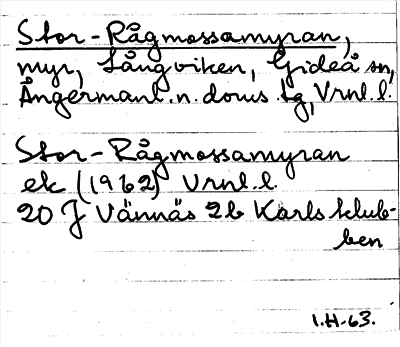 Stor-Rågmossamyran,
myr, Långviken, Gideå sn,
Ångermanl.n.doms.tg, Vrnl.l.
Stor-Rågmossamyran
ek (1962) Vrnl.l.
20 J Vännäs 2b Karlsklub-
ben
I.H-63.